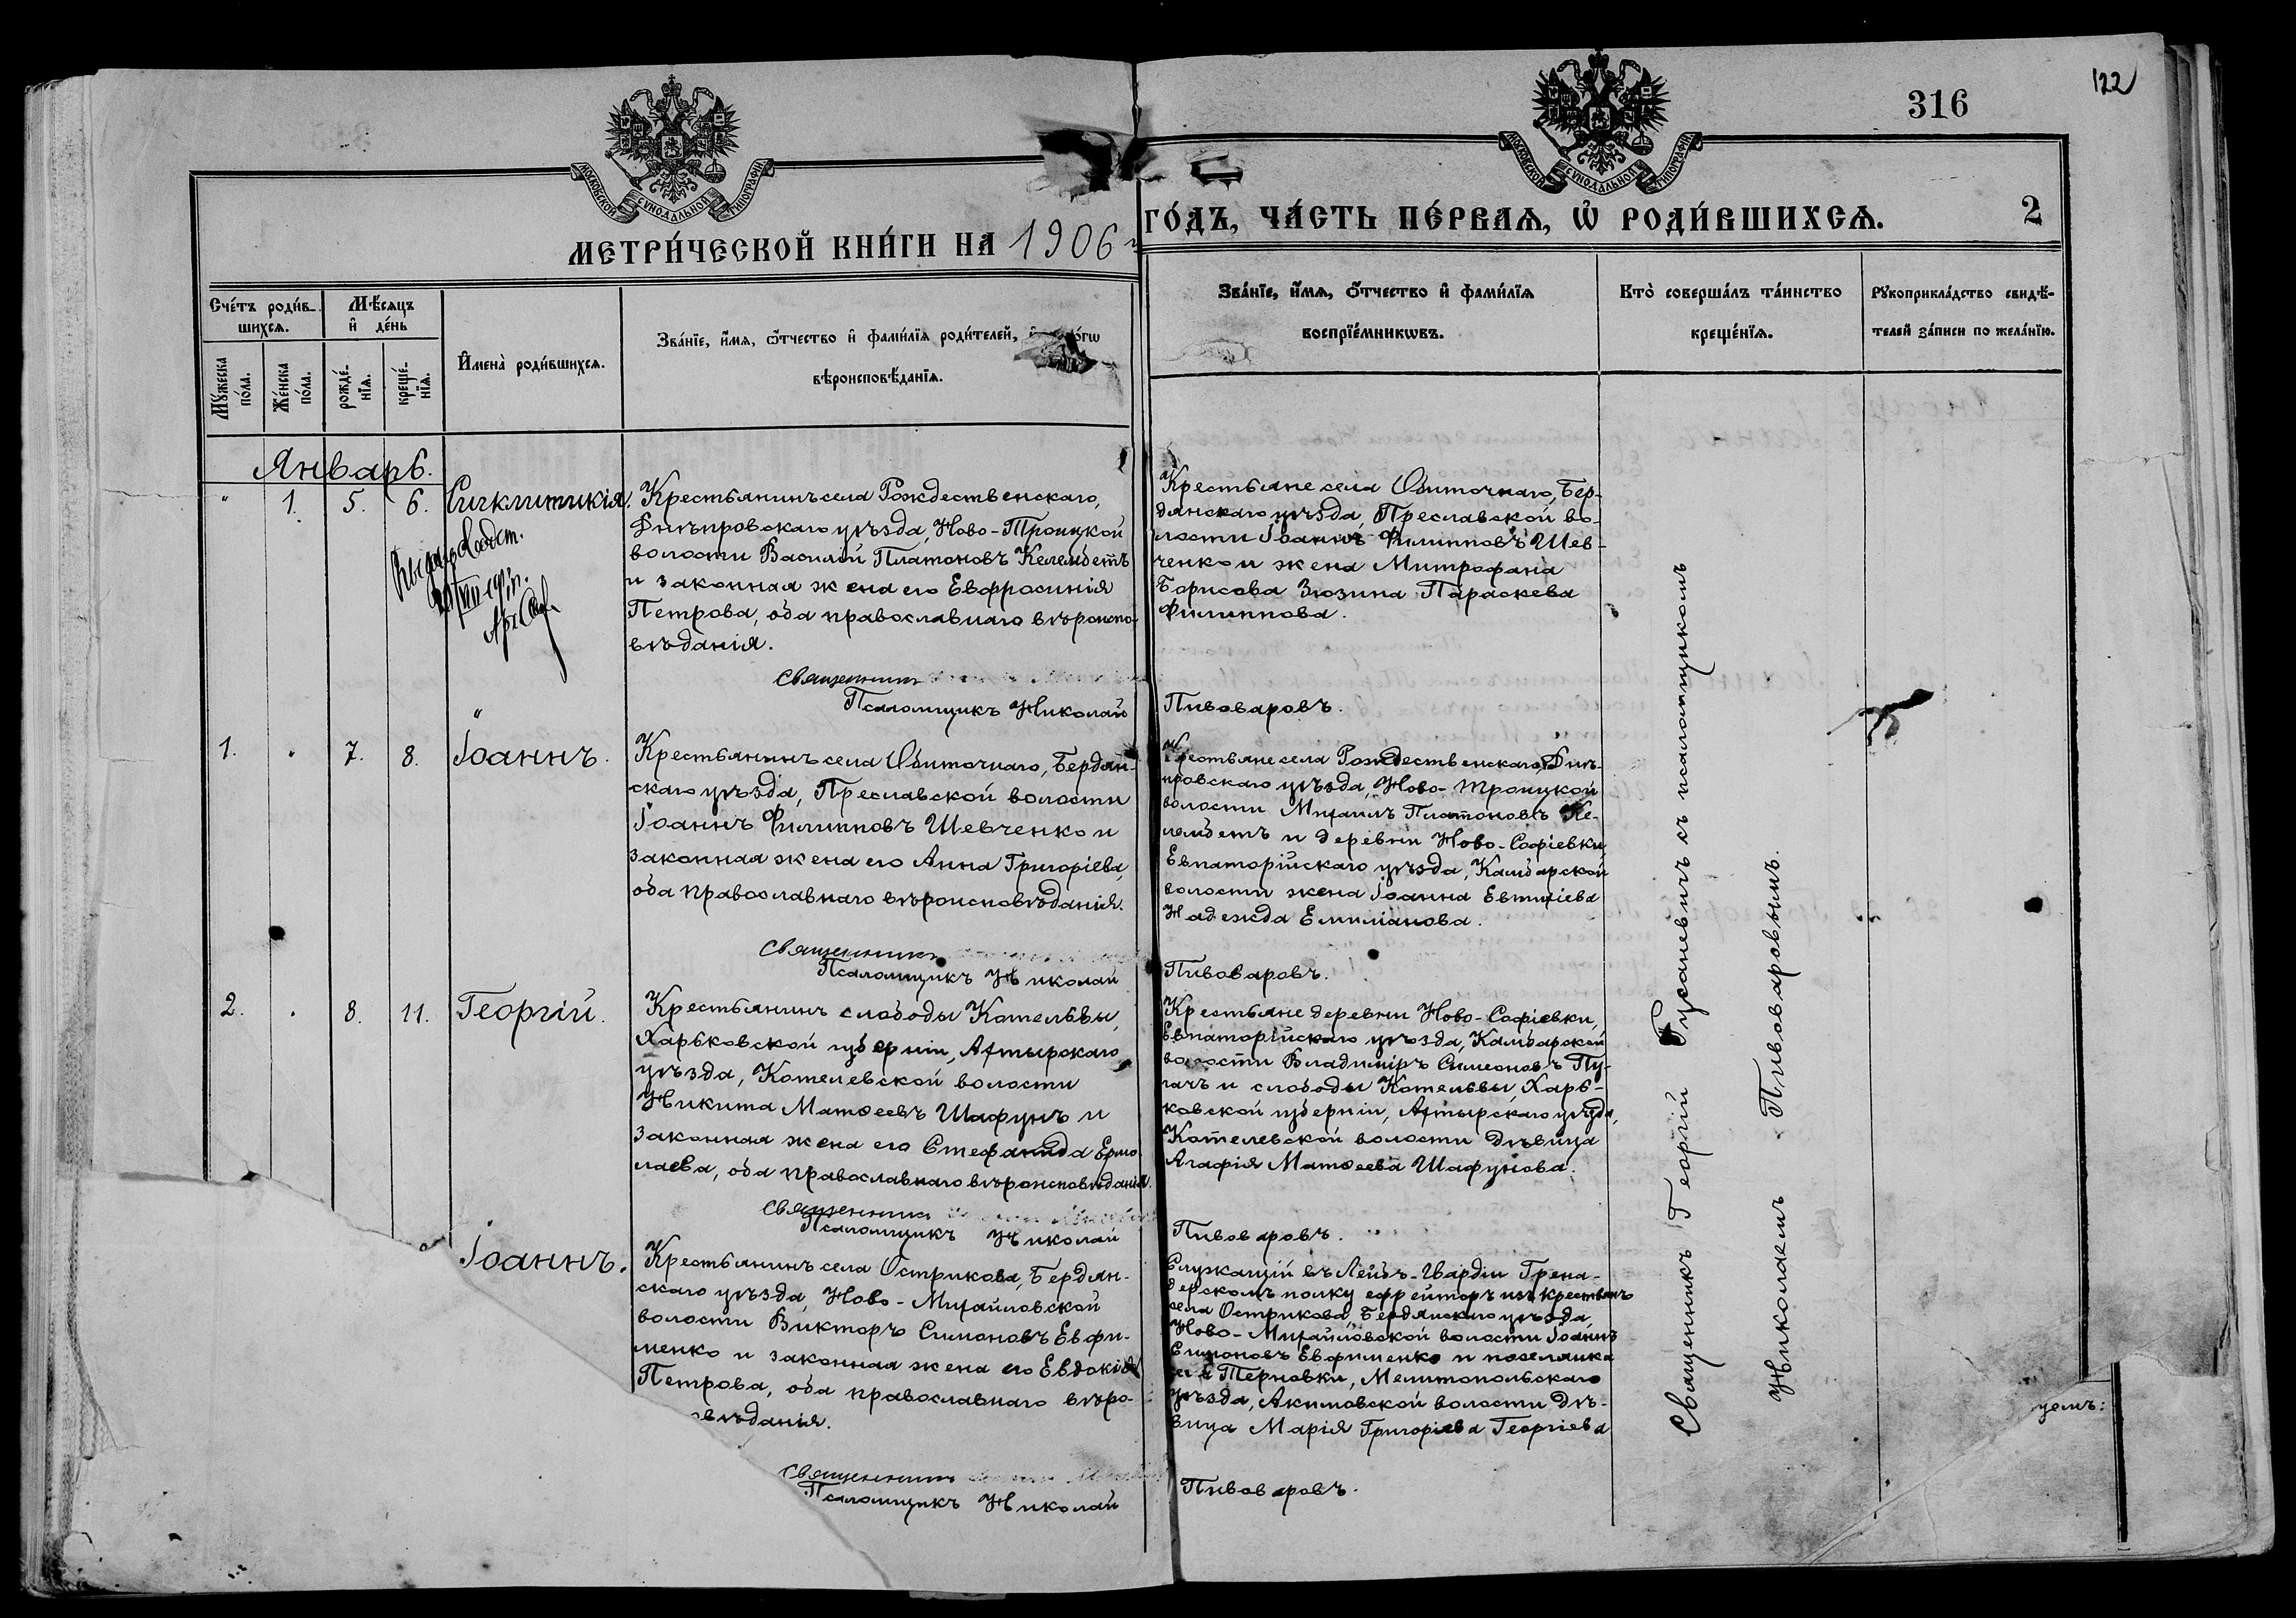 122
316
2
МОСКОВСКОЙ СУНОДАЛЬНОЙ ТИПОГРАФІИ
МОСКОВСКОЙ СУНОДАЛЬНОЙ ТИПОГРАФІИ
МЕТРИ́ЧЕСКОЙ КНИ́ГИ НА 1906
ГО́ДЪ, ЧА́СТЬ ПЕ́РВАѦ, Ѿ РОДИ́ВШИХСѦ.
Сче́тъ роди́в-
шихсѧ.
Мѣ́сѧцъ
и҆ де́нь
Мꙋ́жеска
по́ла.
Же́нска
по́ла.
рожде́-
нїѧ.
креще́-
нїѧ.
И҆мена̀ роди́вшихсѧ.
Зва́нїе, и҆́мѧ, ѻ҆́тчество и҆ фамѝлїѧ роди́телей,
вѣроисповѣ́данїѧ.
Зва́нїе, и҆́мѧ, ѻ҆́тчество и҆ фамѝлїѧ
воспрїе́мникѡвъ.
Кто̀ соверша́лъ та́инство
креще́нїѧ.
Рꙋкоприкла́дство свидѣ́-
телей за́писи по жела́нїю.
Январь.
" 1. 5. 6. Сигклитикія.
Крестьянинъ села Рождественскаго,
Днѣпровскаго уѣзда, Ново-Троицкой
волости Василій Платоновъ Келембетъ
и законная жена его Евфросинія
Петрова, оба православнаго вѣроиспо-
вѣданія.
Крестьяне села Обиточнаго, Бер-
дянскаго уѣзда, Преславской во-
лости Іоаннъ Филипповъ Шев-
ченко и жена Митрофана
Борисова Зюзина Параскева
Филиппова.
Священникъ
Псаломщикъ Николай Пивоваровъ.
1. " 7. 8. Іоаннъ.
Крестьянинъ села Обиточнаго, Бердян-
скаго уѣзда, Преславской волости
Іоаннъ Филипповъ Шевченко и
законная жена его Анна Григоріева,
оба православнаго вѣроисповѣданія.
Крестьяне села Рождественскаго, Днѣ-
провскаго уѣзда, Ново-Троицкой
волости Михаилъ Платоновъ Ке-
лембетъ и деревни Ново-Софіевки,
Евпаторійскаго уѣзда, Камбарской
волости жена Іоанна Евтихіева
Надежда Емиліанова.
Священникъ
Псаломщикъ Николай Пивоваровъ.
2. " 8. 11. Георгій.
Крестьянинъ слободы Котельвы,
Харьковской губерніи, Ахтырскаго
уѣзда, Котелевской волости
Никита Матѳеевъ Шафунъ и
законная жена его Стефанида Ермо-
лаева, оба православнаго вѣроисповѣданія.
Крестьяне деревни Ново-Софіевки,
Евпаторійскаго уѣзда, Камбарской
волости Владиміръ Симеоновъ Пу-
гачъ и слободы Котельвы, Харь-
ковской губерніи, Ахтырскаго уѣзда,
Котелевской волости дѣвица
Агафія Матѳеева Шафунова.
Священникъ
Псаломщикъ Николай Пивоваровъ.
Іоаннъ.
Крестьянинъ села Острикова, Бердян-
скаго уѣзда, Ново-Михайловской
волости Викторъ Симоновъ Евфи-
менко и законная жена его Евдокія
Петрова, оба православнаго вѣро-
овѣданія.
Служащій въ Лейбъ-Гвардіи Грена-
дерскомъ полку ефрейторъ изъ крестьянъ
села Острикова, Бердянскаго уѣзда,
Ново-Михайловской волости Іоаннъ
Симоновъ Евфименко и поселянка
Терновки, Мелитопольскаго
уѣзда, Акимовской волости дѣ-
вица Марія Григоріева Георгіева
Священникъ
Псаломщикъ Николай Пивоваровъ.
Священникъ Георгій Гусаневичъ съ псаломщикомъ
Николаемъ Пивоваровымъ.